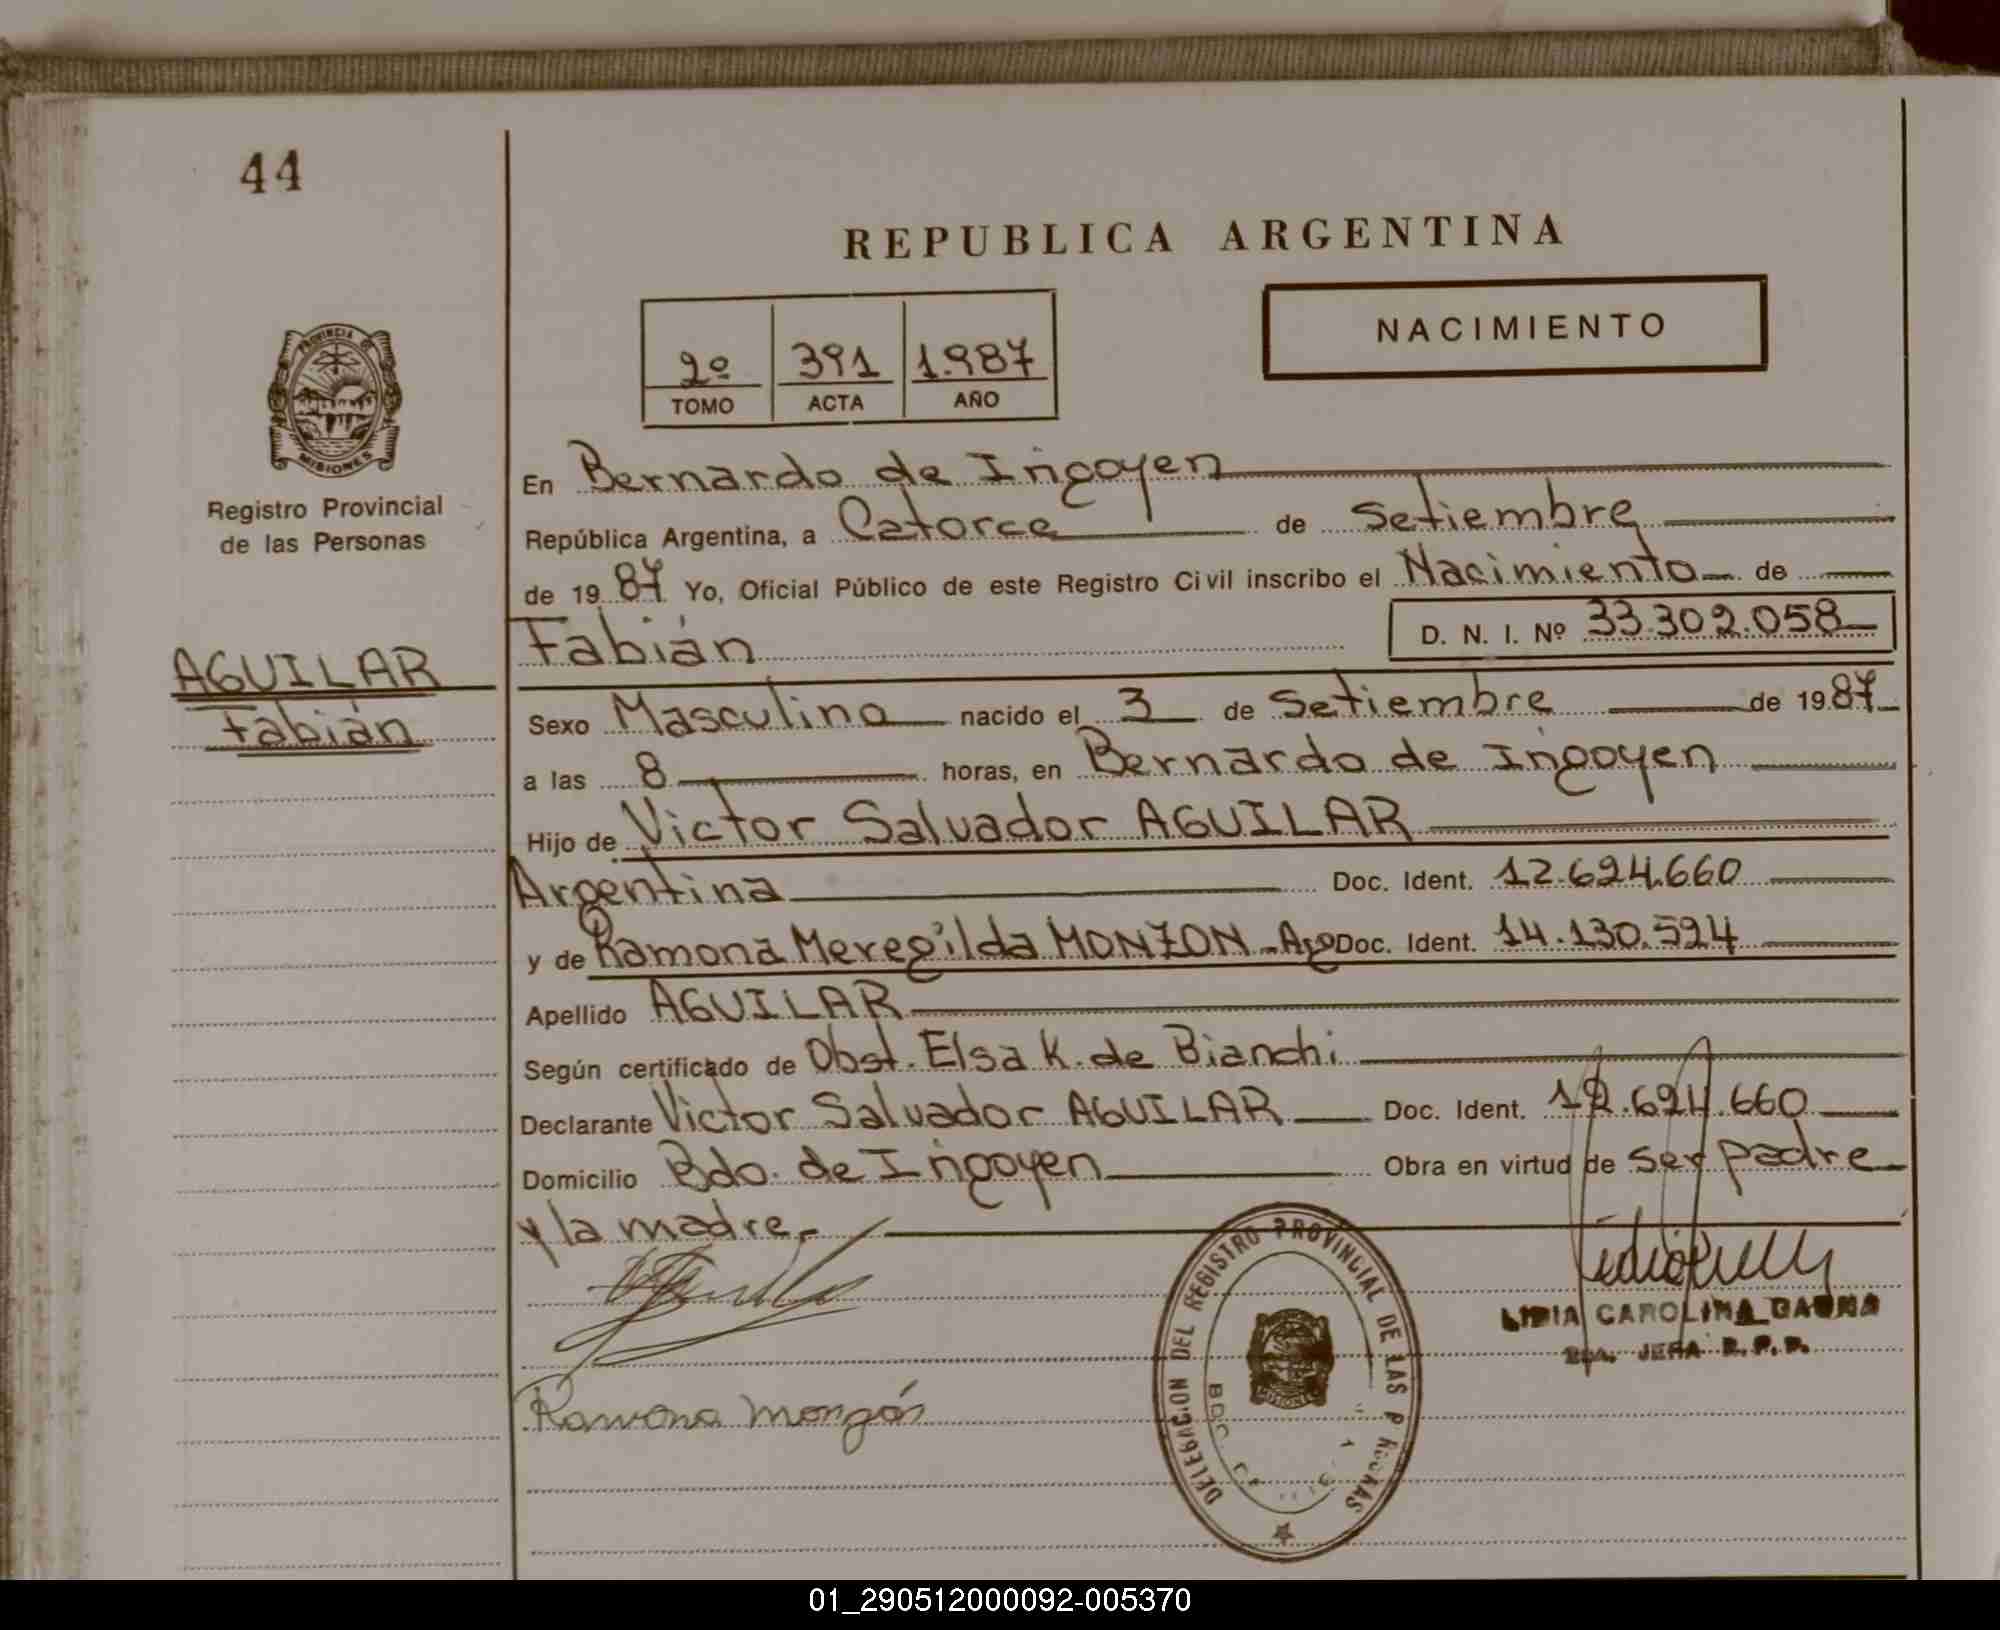 44
REPUBLICA ARGENTINA
2º 391 1.987
TOMO ACTA AÑO
NACIMIENTO
PROVINCIA D
MISIONES
Registro Provincial
de las Personas
AGUILAR
Fabián
En Bernardo de Irigoyen
República Argentina, a Catorce de Setiembre
de 1987 Yo, Oficial Público de este Registro Civil inscribo el Nacimiento de
Fabián D. N. I. Nº 33.302.058
Sexo Masculino nacido el 3 de Setiembre de 1987
a las 8 horas, en Bernardo de Irigoyen
Hijo de Victor Salvador AGUILAR
Argentina Doc. Ident. 12.624.660
y de Ramona Meregilda MONZON - Arg Doc. Ident. 14.130.524
Apellido AGUILAR
Según certificado de Obst. Elsa K. de Bianchi
Declarante Victor Salvador AGUILAR Doc. Ident. 12.624.660
Domicilio Bdo. de Irigoyen Obra en virtud de ser padre
y la madre.-
LIDIA CAROLINA GAUNA
JEFA R. P. P.
Ramona Monzón
DELEGACION DEL REGISTRO PROVINCIAL DE LAS P
MISIONES
01_290512000092-005370